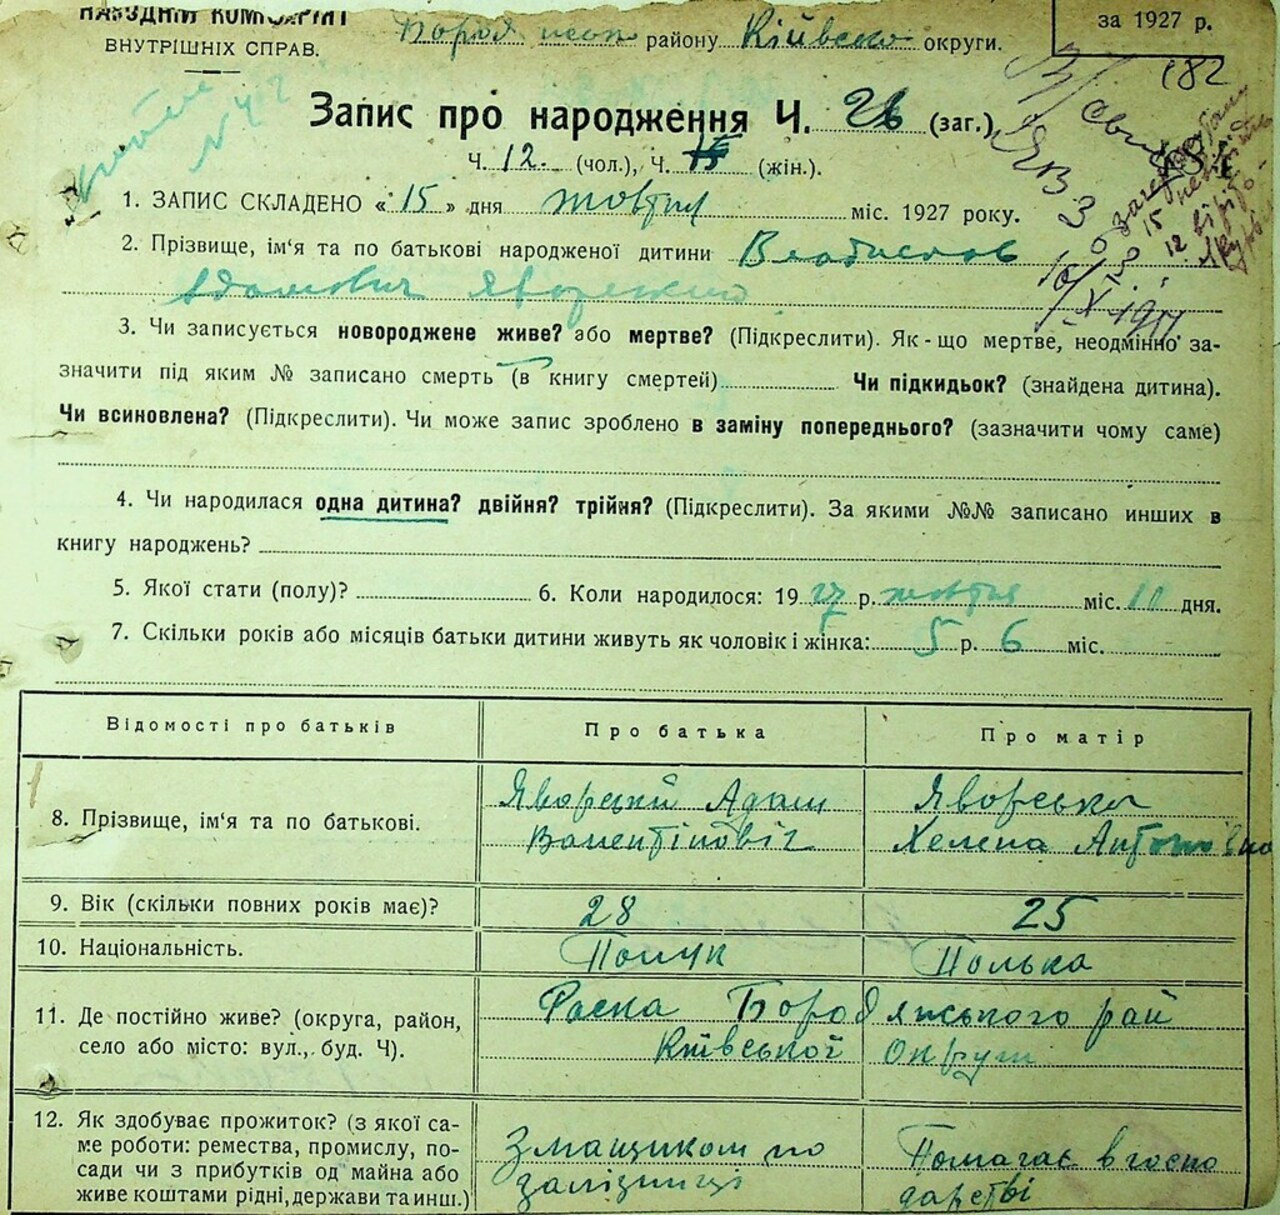 НАРОДНІЙ КОМІСАРІЯТ
ВНУТРІШНІХ СПРАВ.
району Кіівсько округи.
за 1927 р.
182
Запис про народження Ч. 26 (заг.)
Ч. 12. (чол.), Ч. 15 (жін.).
1. ЗАПИС СКЛАДЕНО « 15 » дня жовтня міс. 1927 року.
2. Прізвище, ім‘я та по батькові народженої дитини Владислав
Адамович Яворский
3. Чи записується новороджене живе? або мертве? (Підкреслити). Як-що мертве, неодмінно за-
значити під яким № записано смерть (в книгу смертей) Чи підкидьок? (знайдена дитина).
Чи всиновлена? (Підкреслити). Чи може запис зроблено в заміну попереднього? (зазначити чому саме)
4. Чи народилася одна дитина? двійня? трійня? (Підкреслити). За якими №№ записано инших в
книгу народжень?
5. Якої стати (полу)? 6. Коли народилося: 19 27 р. жовтня міс. 10 дня.
7. Скільки років або місяців батьки дитини живуть як чоловік і жінка: 5 р. 6 міс.
Відомості про батьків Про батька Про матір
8. Прізвище, ім‘я та по батькові.
Яворський Адам
Валентіновіч
Яворська
Хелена Антонівна
9. Вік (скільки повних років має)? 28 25
10. Національність. Поляк Полька
11. Де постійно живе? (округа, район,
село або місто: вул., буд. Ч).
Раска Бородянського рай
Київської Округи
12. Як здобуває прожиток? (з якої са-
ме роботи: ремества, промислу, по-
сади чи з прибутків од майна або
живе коштами рідні, держави та инш.)
Змащиком по
залізниці
Помагає в госпо
дарстві